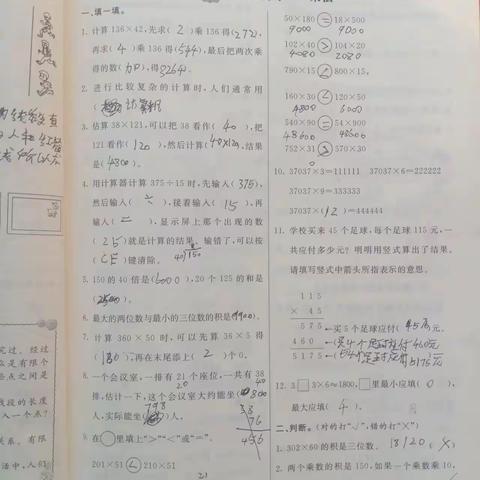 一、填一填。
1. 计算 136×42,先求( 2 )乘 136 得(272),
再求( 4 )乘 136 得(544),最后把两次乘
得的数(加),得(    )。
2. 进行比较复杂的计算时,人们通常用
(计算机)
3. 估算 38×121,可以把 38 看作( 40 ),把
121 看作( 120 ),然后计算(40×120),结果
是(4800)。
4. 用计算器计算 375÷15 时,先输入(375),
然后输入( ÷ ),接着输入( 15 ),再
输入( = ),显示屏上那个出现的数
( 25 )就是计算的结果。输错了,可以按
( CE )键清除。
5. 150 的 40 倍是(6000),20 个 125 的和是
(2500)。
6. 最大的两位数与最小的三位数的积是(9900)。
7. 计算 360×50 时,可以先算 36×5 得
(180),再在末尾添上( 2 )个 0。
8. 一个会议室,一排有 21 个座位,一共有 38
20
40
排,估计一下,这个会议室大约能坐(800)
人,实际能坐(798)人。
9. 在□里填上“>”“<”或“=”。
201×51 < 210×51
50×180 = 18×500
9000 9000
102×40 > 104×20
4080 2080
790×15 < 800×15,
160×30 < 120×50
4800 6000
540×90 = 54×900
48600 48600
752×31 > 570×30
10. 37037×3=111111 37037×6=222222
37037×9=333333
37037×(12)=444444
11. 学校买来 45 个足球,每个足球 115 元,一
共应付多少元?明明用竖式算出了结果。
请填写竖式中箭头所指表示的意思。
1 1 5
× 4 5
5 7 5 ←买 5 个足球应付(575)元
4 6 0
5 1 7 5
12. 3□3×6≈1800,□里最小应填( 0 ),
最大应填( 4 )。
二、判断。(对的打“√”,错的打“×”)
1. 302×60 的积是三位数。 18120 (×)
2. 两个乘数的积是 150,如果一个乘数乘 10,